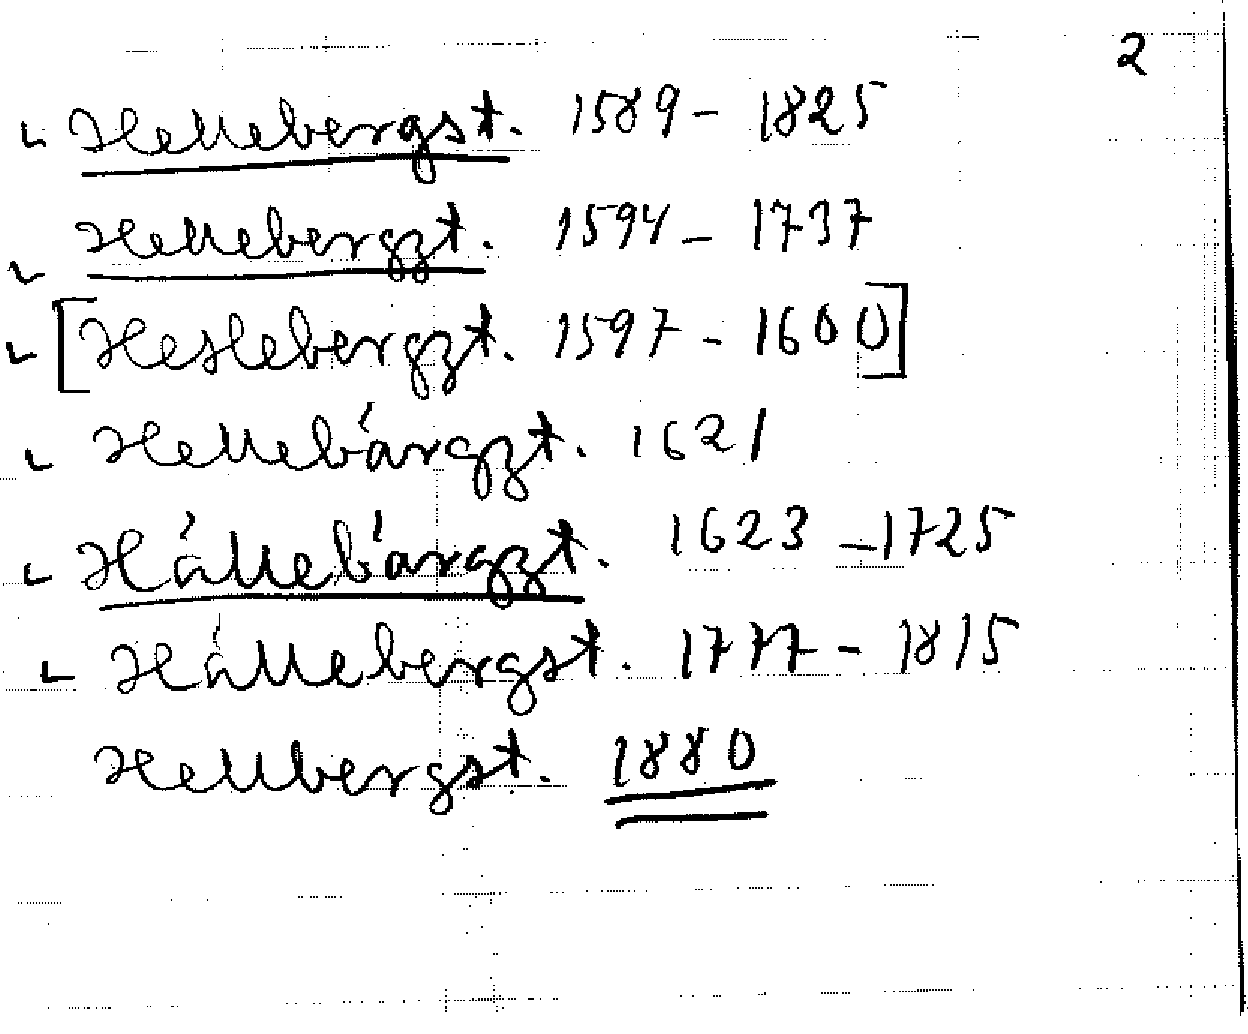 2
Hellebergst. 1589 - 1825
Hellebergzt. 1594 - 1737
[Heslebergzt. 1597 - 1600]
Hellebárgzt. 1621
Hállebárgzt. 1623 - 1725
Hállebergst. 1777 - 1815
Hellbergst. 1880